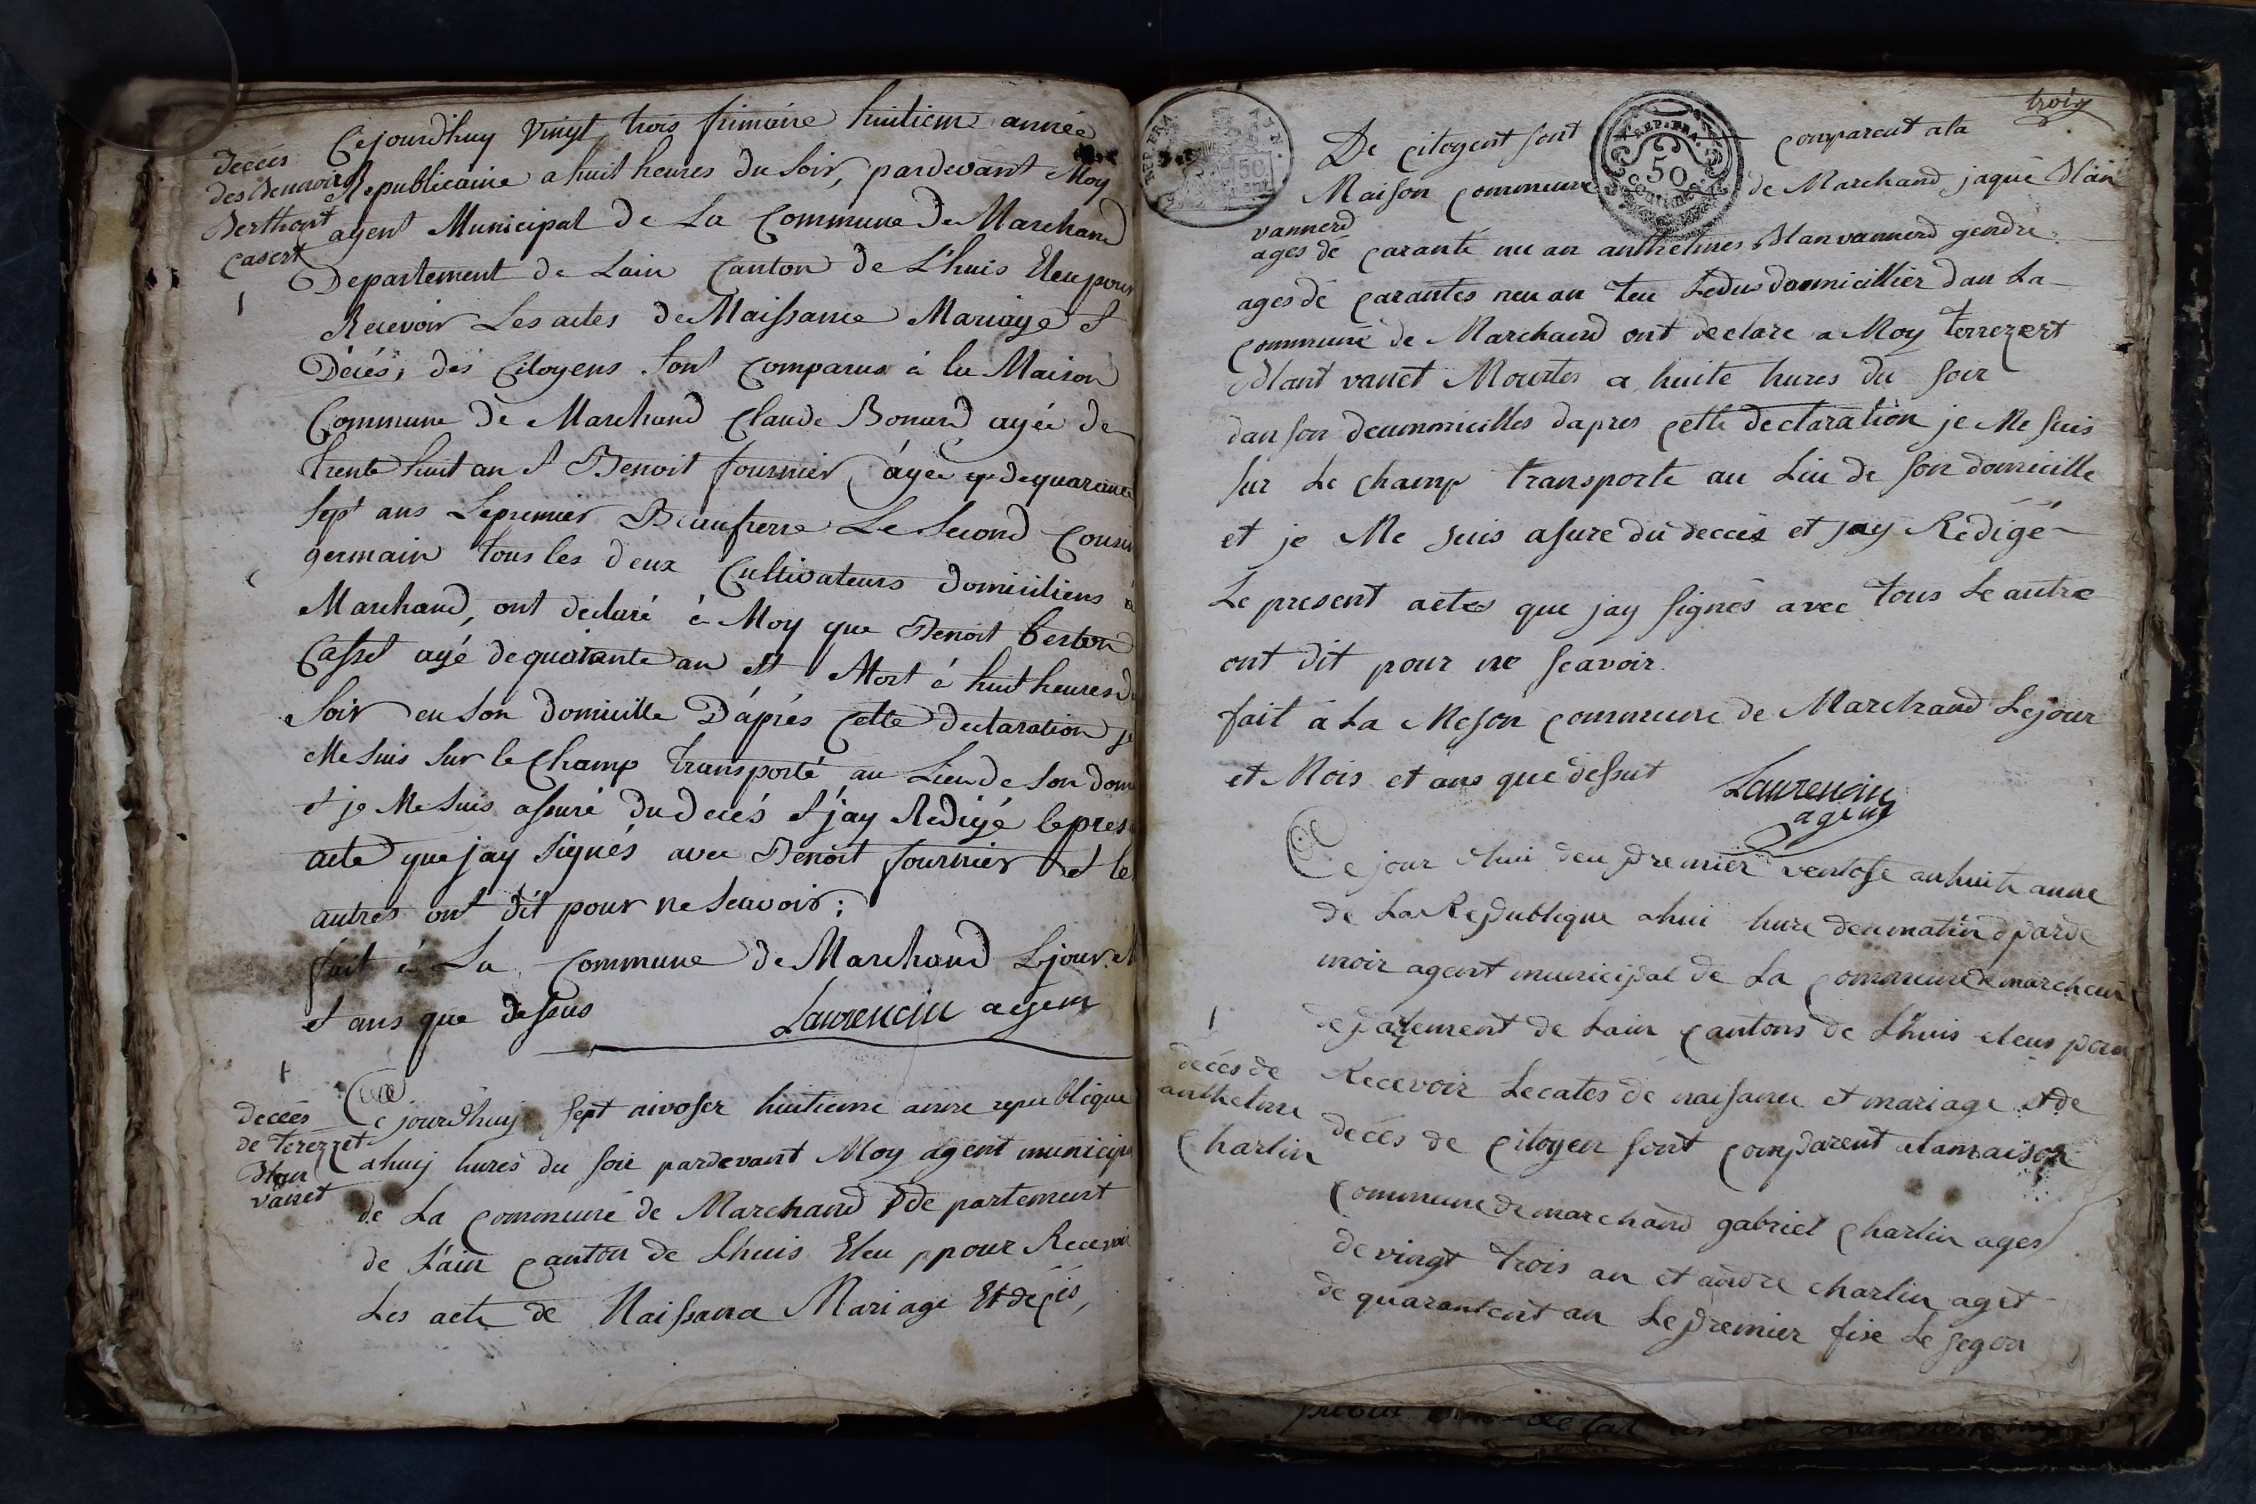 décés
des Bennoird
Berthont
Casert
1
Cejourd'huy Vingt trois frimaire huitiem année
Republicaine a huit heures du Soir, pardevant Moy
agent Municipal de La Commune de Marchand
Departement de Lain Canton de L'huis Eleu pour
Recevoir Les actes de Naissance Mariage et
Décés, des Citoyens Sont Comparus à la Maison
Commune de Marchand Claude Bonard agée de
trente huit an et Benoit fournier agée de quarante
Sept ans Le premier Beaufrerre Le Second Cousin
germain tous les deux Cultivateurs domiciliens à
Marchand, ont declaré à Moy que Benoit berton
Casset agé de quarante an est Mort à huit heures du
Soir en Son domicille D'aprés Cette declaration je
Me Suis Sur le Champ transporté au Lieu de Son dom
et je Me Suis assuré du decés et j'ay Redigé le pres
acte que j'ay Signés avec Benoit fournier et les
autres ont dit pour ne Scavoir;
fait à La Commune de Marchand Le jour et
et ans que dessus Laurencin agent
1
decées
de terezzet
Blan
vanet
Ce jourd'huy Sept nivoser huitieme anne republique
a huij hures du Soir pardevant Moy agent municipa
de La Commune de Marchand de partement
de L'ain Canton de L'huis Eleu ppour Recevoir
Les acte de Naissance Mariage Et decés,
troix
REP. FRA.
50
De citogent sont comparent a la
REP. FRA.
50
Centimes
Maison commeune de Marchand jaque Blan
vannerd
ages de carante nu an anthelmes Blanvannerd gendre
ages de carantes neu an teu Ledus domicillier dan La
commune de Marchand ont declare a Moy terrezert
Blant vanet Mourtes a huite hures du Soir
dan son deummicilles dapres cette declaration je Me suis
sur Le champ transporte au Liu de son domicille
et je Me suis asure du decces et jay Rédigé
Le present actes que jay Signés avec tous Le autre
ont dit pour ne scavoir.
fait a La Meson commeune de Marchand Lejour
et Mois et ans que dessut Laurencin
agent
Ce jour hui deu premier ventose an huite anne
de La Republique a hui hure deu matin parde
moir agent municipal de La commeune de marchand
depatement de Lain cantons de L'huis eleus pour
1
decés de
anthelme
Charlin
Recevoir Lecates de naisance et mariage et de
decés de citoyen sont comparent a lamaison
commeune de marchand gabriel Charlin ages
de vingt trois an et andre charlin aget
de quarantent an Le premier fise Le segon